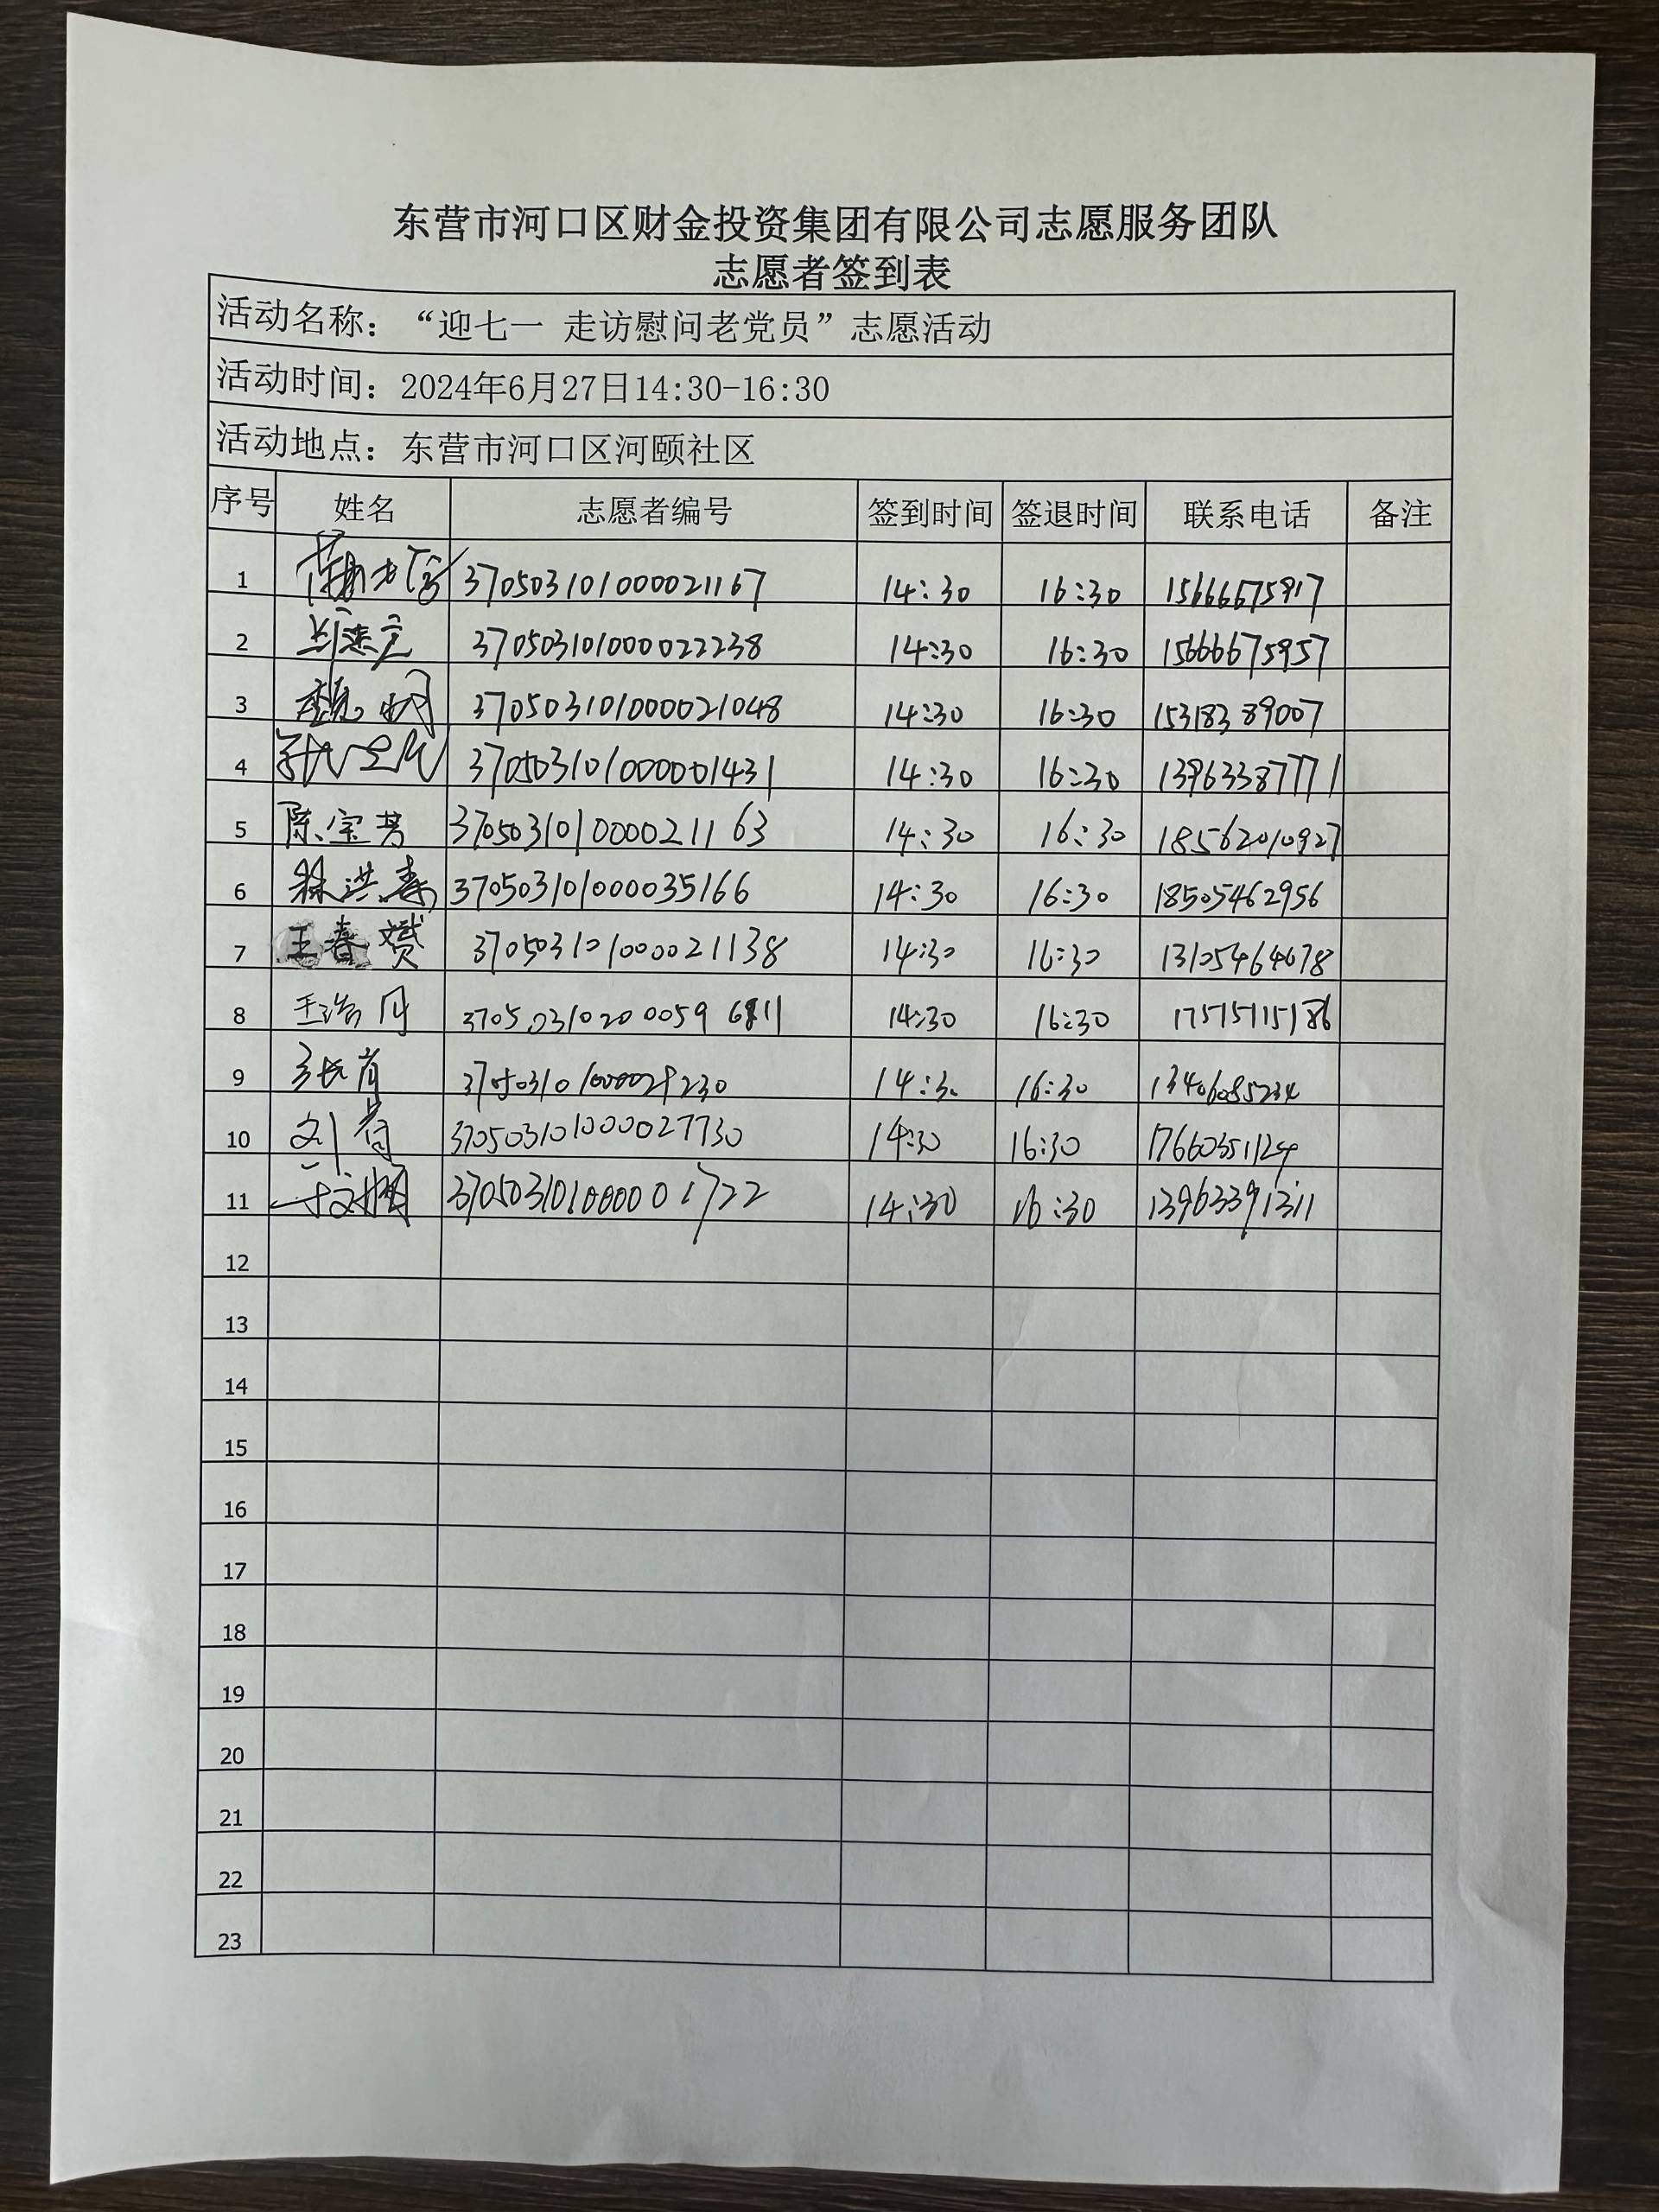 东营市河口区财金投资集团有限公司志愿服务团队
志愿者签到表
活动名称：“迎七一 走访慰问老党员”志愿活动
活动时间：2024年6月27日14:30-16:30
活动地点：东营市河口区河颐社区
序号 姓名 志愿者编号 签到时间 签退时间 联系电话 备注
1 370503101000021167 14:30 16:30 15666675917
2 370503101000022238 14:30 16:30 15666675957
3 370503101000021048 14:30 16:30 15318389007
4 370503101000001431 14:30 16:30 13963387771
5 陈宝芳 370503101000021163 14:30 16:30 18562010927
6 徐洪春 370503101000035166 14:30 16:30 18505462956
7 王春赟 370503101000021138 14:30 16:30 13105464678
8 王浩月 14:30 16:30 17515115186
9 14:30 16:30
10 370503101000027730 14:30 16:30 17660351124
11 370503101000001722 14:30 16:30 13963391311
12
13
14
15
16
17
18
19
20
21
22
23